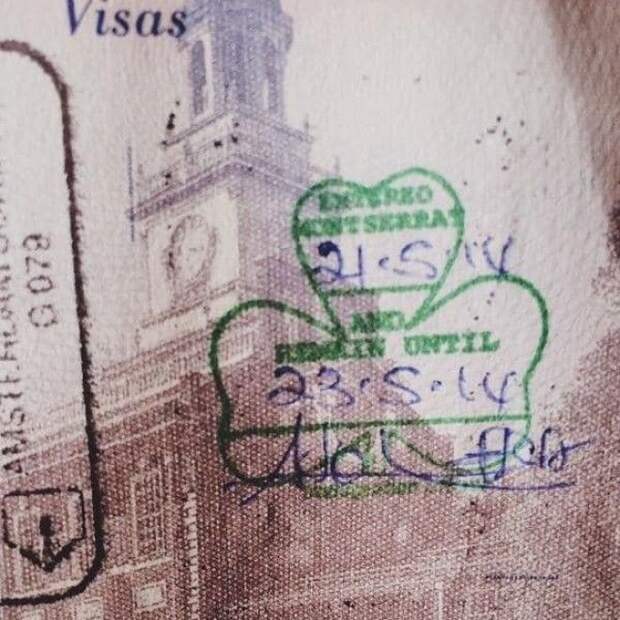 Visas
ENTERED
MONTSERRAT
21.5.14
AND
REMAIN UNTIL
23.5.14
AMSTERDAM
G 079